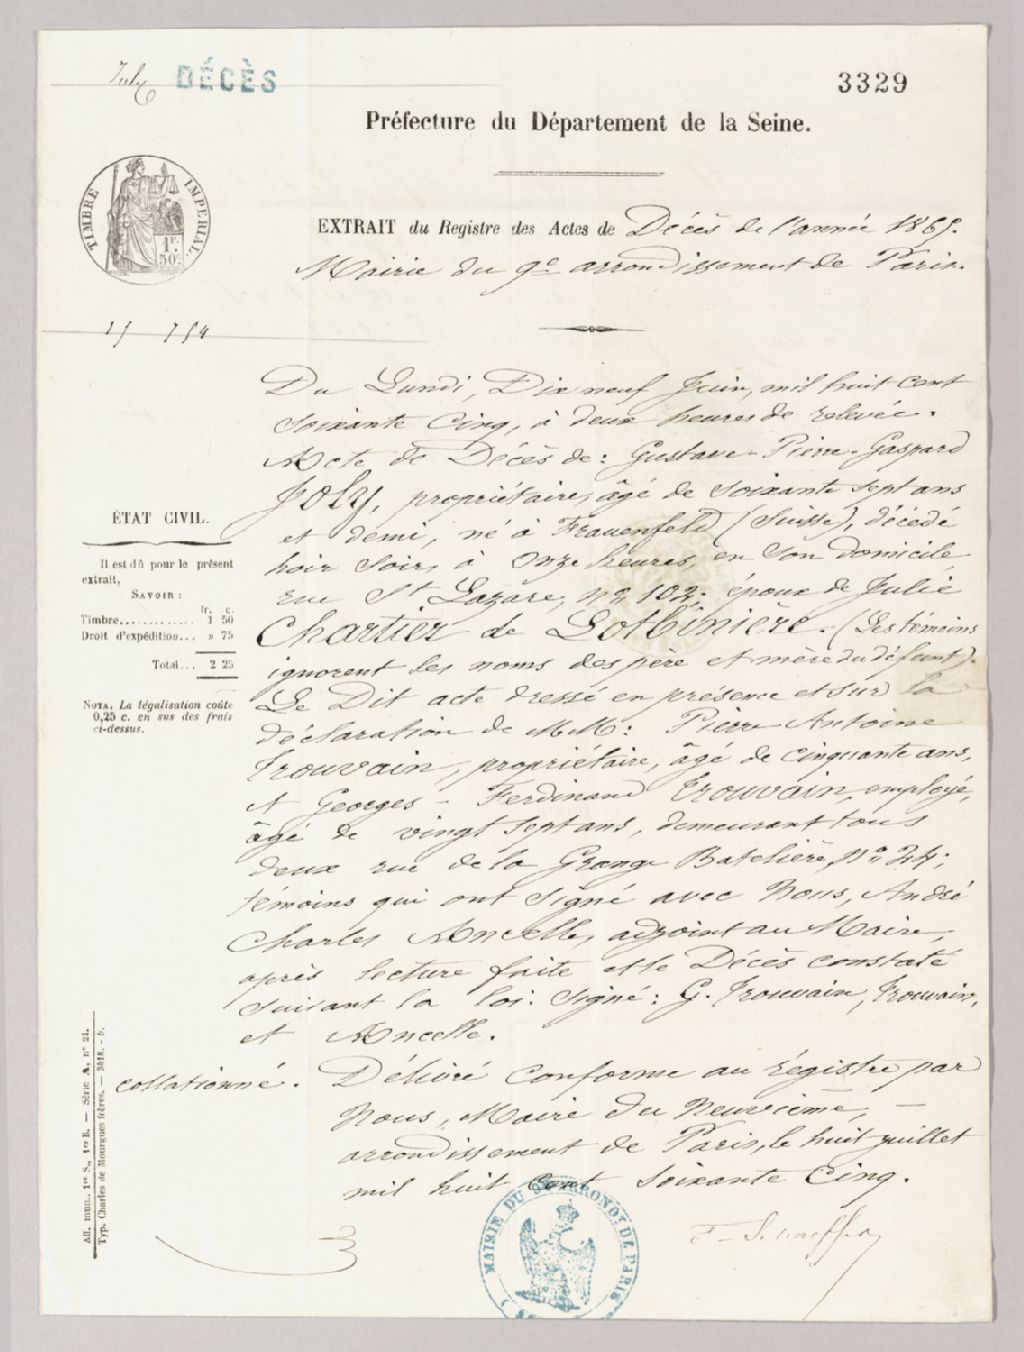 DÉCÈS
3329
Préfecture du Département de la Seine.
TIMBRE IMPERIAL.
1F.
50c.
EXTRAIT du Registre des Actes de Décès de l'année 1865.
Mairie du 9e arrondissement de Paris.
Du Lundi, Dix neuf Juin, mil huit cent
soixante Cinq, à deux heures de relevée.
Acte de Décès de: Gustave-Pierre-Gaspard
Joly, propriétaire, âgé de soixante sept ans
et demi, né à Frauenfeld (Suisse), décédé
hier soir, à onze heures, en son domicile
rue St Lazare, no 102; époux de Julie
Chartier de Lotbinière. (Les témoins
ignorent les noms des père et mère du défunt).
Le Dit acte dressé en présence et sur la
déclaration de M.M: Pierre Antoine
Trouvain, propriétaire, âgé de cinquante ans,
et Georges-Ferdinand Trouvain, employé,
âgé de vingt sept ans, demeurant tous
deux rue de la Grange Batelière, no 24;
témoins qui ont signé avec Nous, André
Charles Ancelle, adjoint au Maire,
après lecture faite et le Décès constaté
suivant la loi. Signé: G. Trouvain, Trouvain,
et Ancelle.
ÉTAT CIVIL.
Il est dû pour le présent
extrait,
SAVOIR:
fr. c.
Timbre............. 1 50
Droit d'expédition... » 75
Total... 2 25
NOTA. La légalisation coûte
0,25 c. en sus des frais
ci-dessus.
collationné.
Délivré conforme au régistre par
Nous, Maire du Neuvième,
arrondissement de Paris, le huit juillet
mil huit cent soixante Cinq.
Typ. Charles de Mourgues frères.